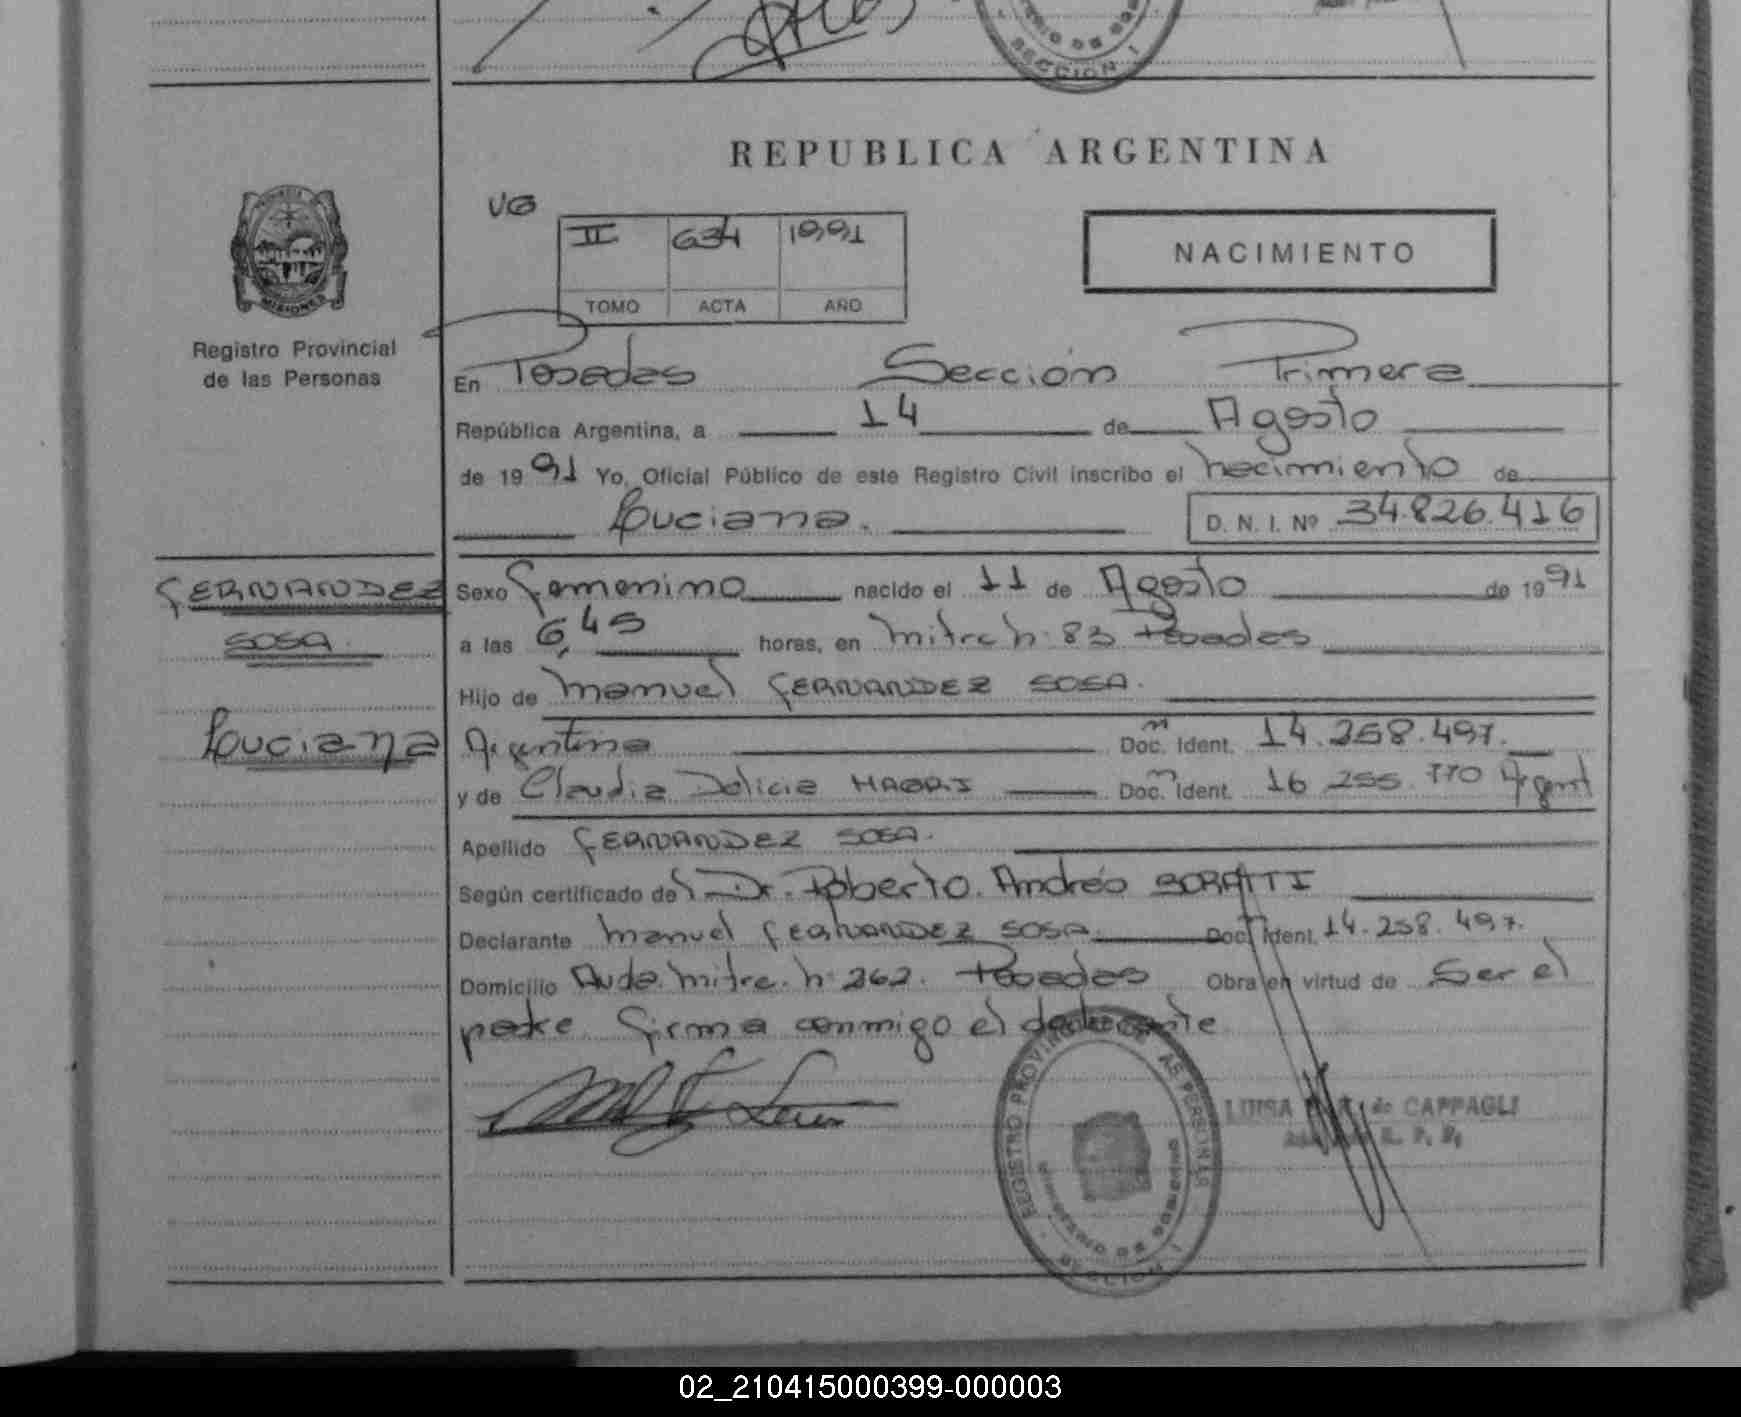 SECCION I
REPUBLICA ARGENTINA
MISIONES
Registro Provincial
de las Personas
VG
II 634 1991
TOMO ACTA AÑO
NACIMIENTO
En Posadas Sección Primera
República Argentina, a 14 de Agosto
de 1991 Yo, Oficial Público de este Registro Civil inscribo el nacimiento de
Luciana. D. N. I. Nº 34.826.416
FERNANDEZ
SOSA.
Luciana
Sexo Femenino nacido el 11 de Agosto de 1991
a las 6,45 horas, en Mitre n: 83 Posadas
Hijo de Manuel FERNANDEZ SOSA.
Argentina Doc. Ident. 14.258.497.
y de Claudia Delicia Doc. Ident. 16 255.770 Argent
Apellido FERNANDEZ SOSA.
Según certificado del Dr. Roberto. Andrés BORATTI
Declarante Manuel FERNANDEZ SOSA Doc. Ident. 14.258.497.
Domicilio Avda. Mitre. n: 262. Posadas Obra en virtud de Ser el
padre. Firma conmigo el declarante
REGISTRO PROVINCIAL DE LAS PERSONAS
MINISTERIO DE GOBIERNO
SECCION I
LUISA de CAPPAGLI
R. P. P.
02_210415000399-000003